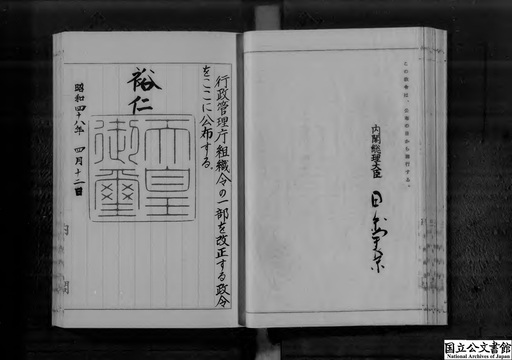 この政令は、公布の日から施行する。
内閣総理大臣
田中角榮
行政管理庁組織令の一部を改正する政令
をここに公布する。
裕仁
天皇
御璽
昭和四十八年四月十二日
内閣
国立公文書館
National Archives of Japan